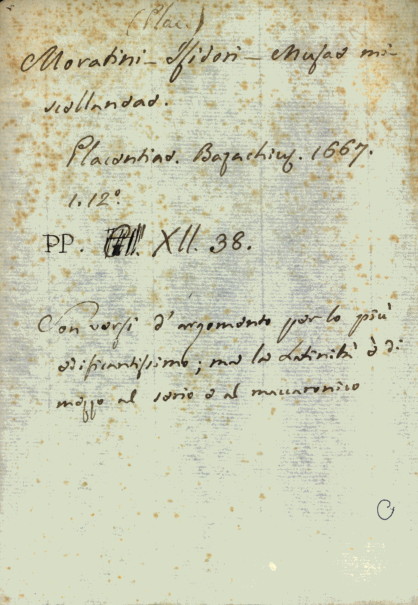 (Plac.)
Moratini - Isidori - Musae mi-
scellaneae.
Placentiae. Bazachius. 1667.
1. 12°.
PP. XII. 38.
Son versi d'argomento per lo più
edificantissimo; ma la Latinità è di
mezzo al serio e al maccaronico
C